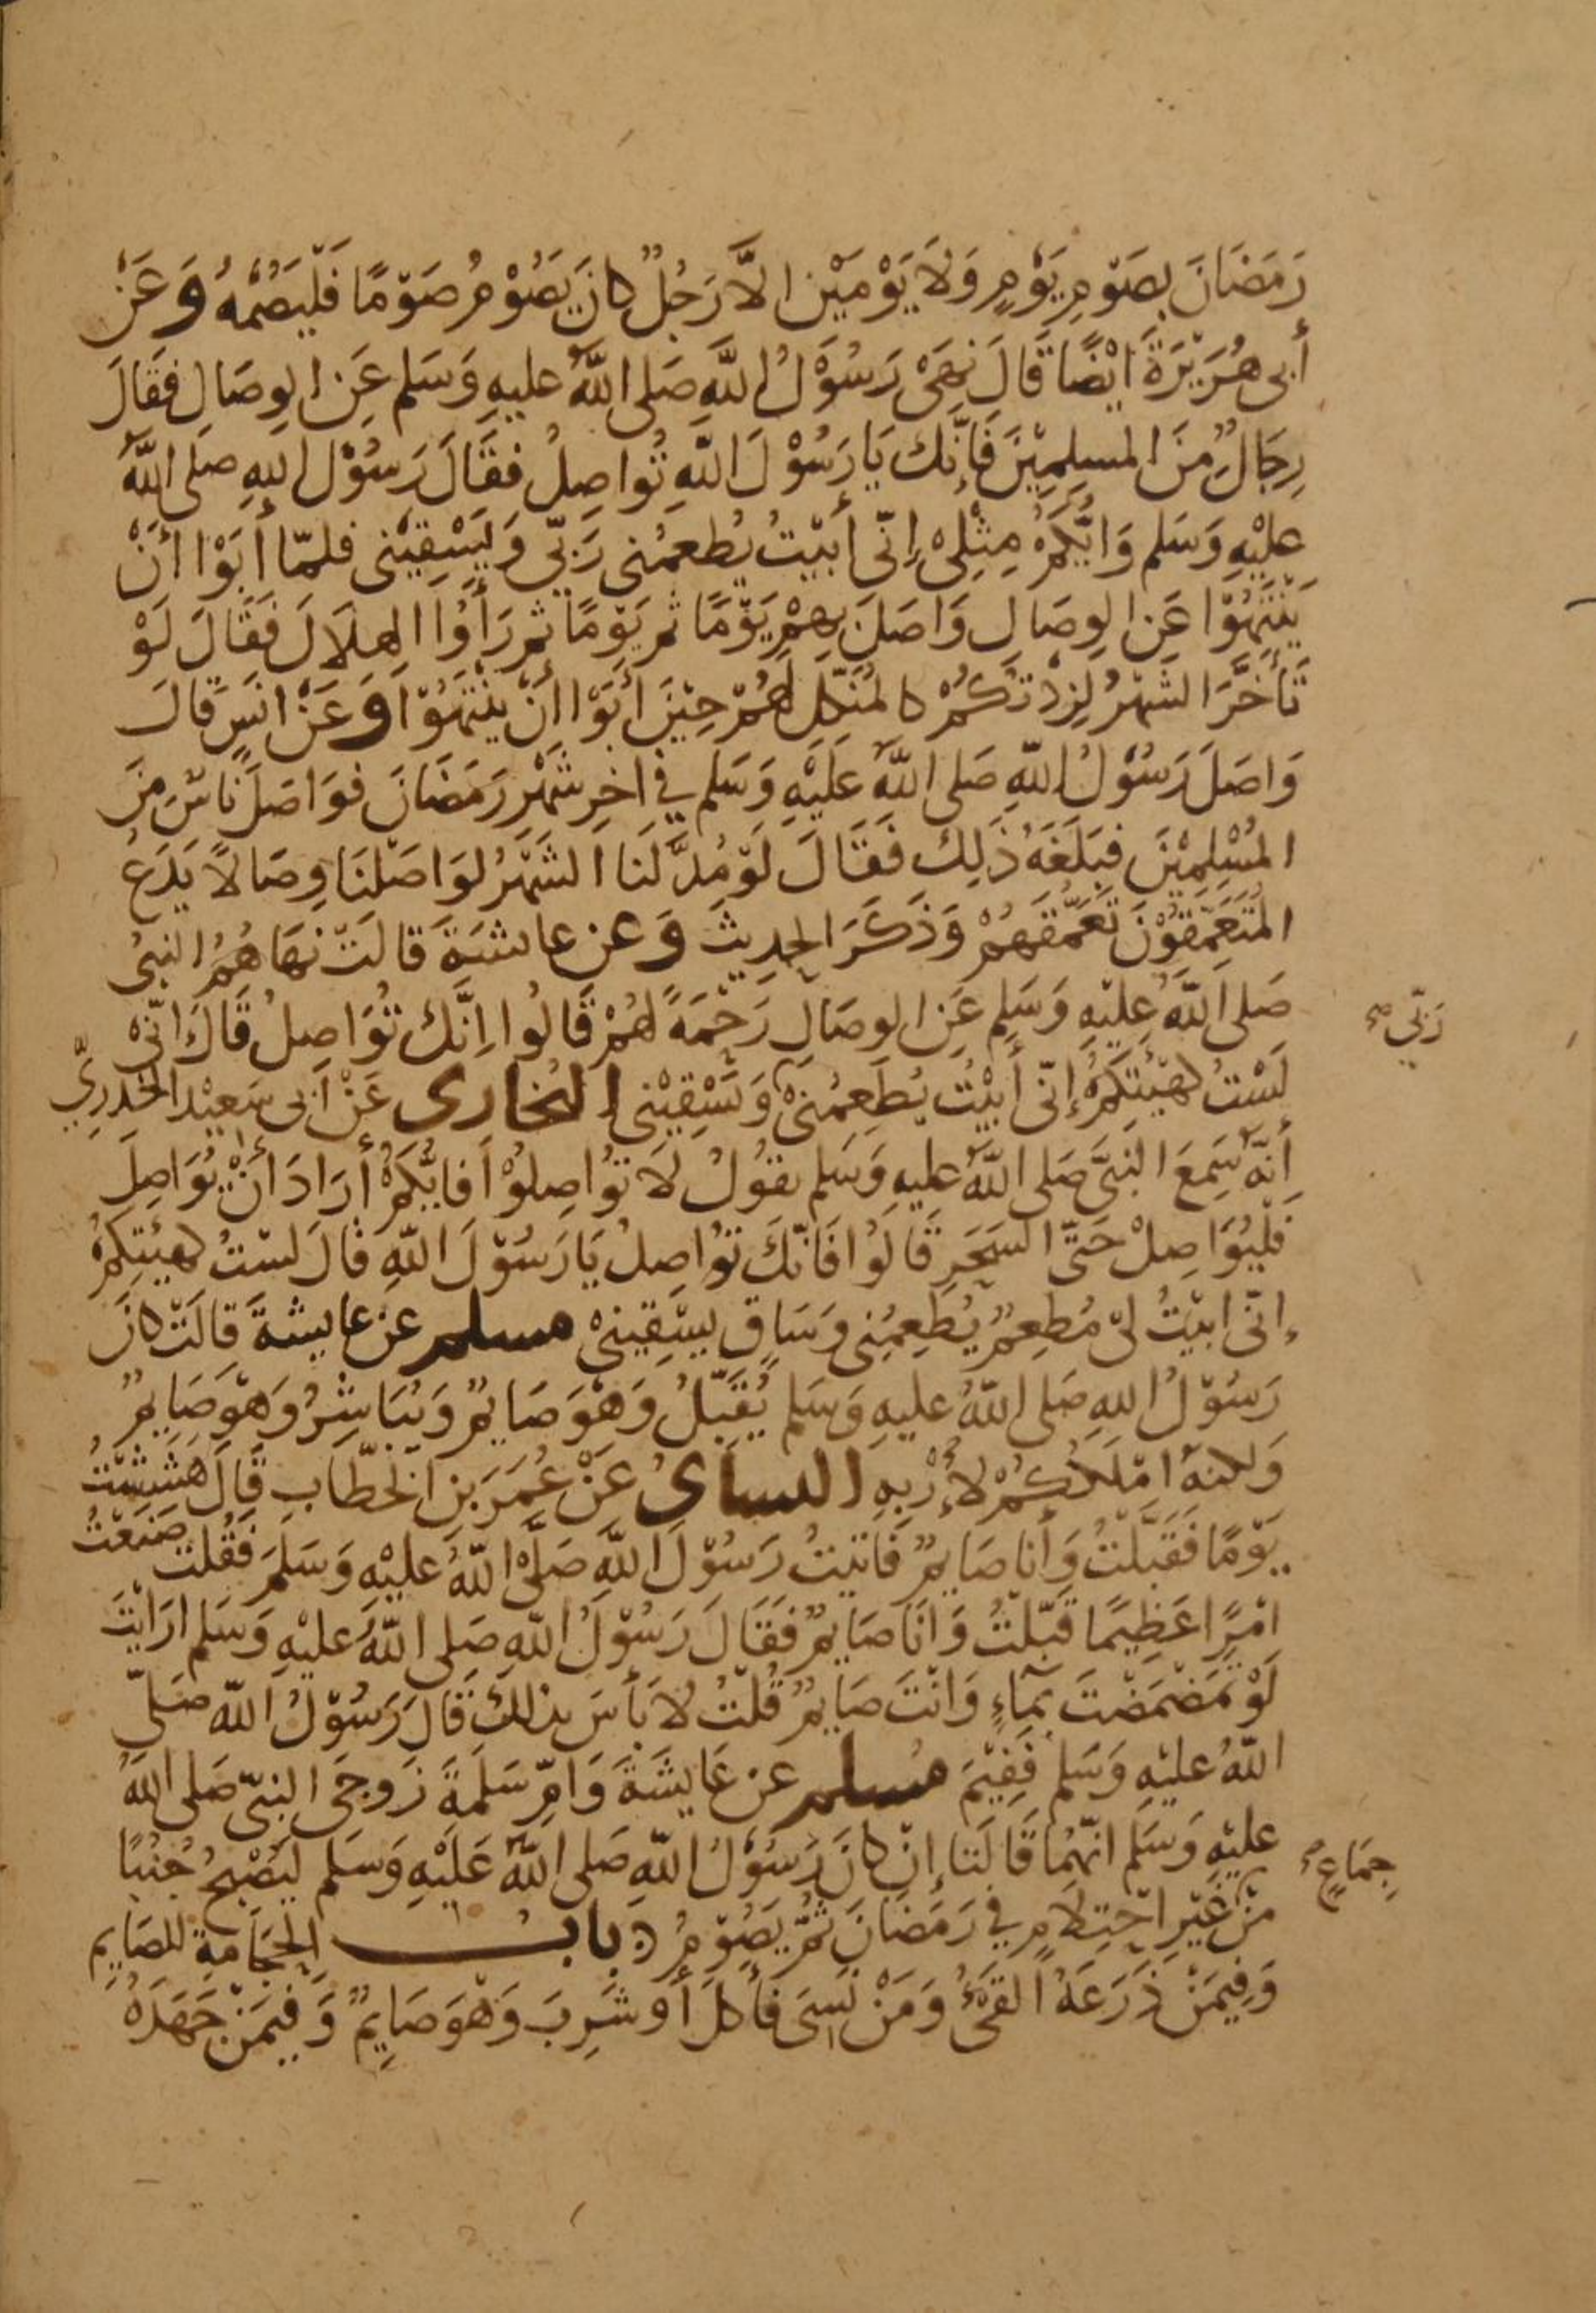 رَمَضَانَ بِصَوْمِ يَوْمٍ وَلَا يَوْمَيْنِ الَّا رَجُلٌ كانَ يَصُوْمُ صَوْمًا فَلْيَصُمْهُ وَعَنْ
أَبى هُرَيْرَةَ ايْضًا قَالَ نَهَىْ رَسُوْلُ اللَّهِ صَلى اللَّهُ عليهِ وَسَلم عَنِ الوِصَالِ فقَالَ
رِجَالٌ مِنَ المسلِمِيْنَ فَإنَّكَ يَا رَسُوْلَ اللّهِ تُواصِلُ فقَالَ رَسُوْل اللهِ صلى اللَّهُ
عليْهِ وَسَلم وَايُّكُمْ مِثْلِىْ إِنّى أَبيْتُ يُطعمُنى رَبّي وَيَسْقِيْنى فلمّا أَبَوْا أَنْ
يَنْتَهُوْا عَنِ الوِصَالِ وَاصَلَ بِهِمْ يَوْمًا ثم يَوْمًا ثم رَأَوُا الهلَالَ فَقَالَ لَوْ
تَأَخَّرَ الشَهْرُ لزِدْتكُمْ كالمُنَكِّلِ لَهُمْ حِيْنَ أَبَوْا أَنْ يَنْتَهُوْا وَعَنْ انَسٍ قَالَ
وَاصَلَ رَسُوْلُ اللّهِ صَلى اللَّهُ عَلَيْهِ وَسَلم في اخِرِ شَهْرِ رَمَضَانَ فوَاصَلَ نَاسٌ مِنَ
المُسْلِمِيْنَ فبَلَغَهُ ذَلِكَ فَقَالَ لَوْ مُدَّ لَنا الشَهْرُ لوَاصَلْنَا وِصَالاً يَدَعُ
المُتَعَمِّقُوْنَ تَعَمُّقَهُمْ وَذَكَرَ الحدِيثَ وَعن عايشَةَ قالَتْ نهَاهُمُ النبىُ
صَلى اللَّهُ عليْهِ وَسَلم عَنِ الوصَالِ رَحْمَةً لهُمْ قَالُوا اِنَّكَ تُوَاصِلُ قَالَ انّىْ
رَبّي صح
لَسْتُ كهيْئتِكُمْ إنّى أَبيْتُ يُطعِمُنىْ وَيَسْقِيْنى البُخارى عَنْ أبى سَعِيْدٍ الخُدرِيِّ
أَنَّهُ سَمِعَ النبىَّ صَلى اللَّهُ عليهِ وَسَلم يقوُلُ لَا تُواصِلوُا فَايُّكُمْ أَرَادَ أَنْ يُوَاصِلَ
فَلْيُوَاصِلْ حَتَّى السَحَرِ قَالوُا فَانّكَ تُوَاصِلُ يَا رَسُوْلَ اللّهِ قالَ لسْتُ كهيئتِكُمْ
إنّى ابيْتُ لىْ مُطعِمٌ يُطعِمُنِى وَسَاقٍ يسْقِينىْ مسلم عن عايشةَ قالَتْ كانَ
رَسُوْلُ اللهِ صَلى اللّهُ عليهِ وَسَلم يُقَبِّلُ وَهْوَ صَايمٌ وَيُبَاشِرُ وَهْوَ صَايمٌ
وَلكنهُ امْلَكُكُمْ لأَرَبِهِ النساىُ عَنْ عُمَرَ بنِ الخطّابِ قَالَ هَشِشْتُ
يَوْمًا فَقَبَّلْتُ وَأَنا صَايمٌ فَاتيْتُ رَسُوْلَ اللّهِ صَلَّىْ اللّهُ عليْهِ وَسَلمَ فقُلت صَنَعْتُ
امْرًا عَظِيمًا قَبَّلْتُ وَانَا صَايمٌ فَقَالَ رَسُوْلُ اللّهِ صَلى اللّهُ عليْهِ وَسَلم ارَايْتَ
لَوْ تَمَضْمَضْتَ بمَآءٍ وَانْتَ صَايمٌ قُلْتُ لَا بَأسَ بذلِكَ قَالَ رَسُوْلُ اللّه صَلىّ
اللّهُ عليْهِ وَسَلم فَفِيْمَ مسلم عن عَايشَةَ وَامِّ سَلَمَةَ زَوجَىِ النبىّ صَلى اللّهُ
عليْهِ وَسَلم انّهُمَا قَالَتَا إنْ كانَ رَسُوْلُ اللّهِ صَلى اللَّهُ عَلَيْهِ وَسَلم ليُصْبحُ جُنبًا
جِمَاعٍ
مِنْ غَيْرِ احْتِلَامٍ في رَمَضَانَ ثُمَّ يَصُوْمُ باب الحِجَامَةِ للصَايمِ
وَفِيمَنْ ذَرَعَهُ القىْءُ وَمَنْ نَسِىَ فَأَكلَ أَوْ شَرِبَ وَهْوَ صَايِمٌ وَفيمَنْ جَهَدَهُ